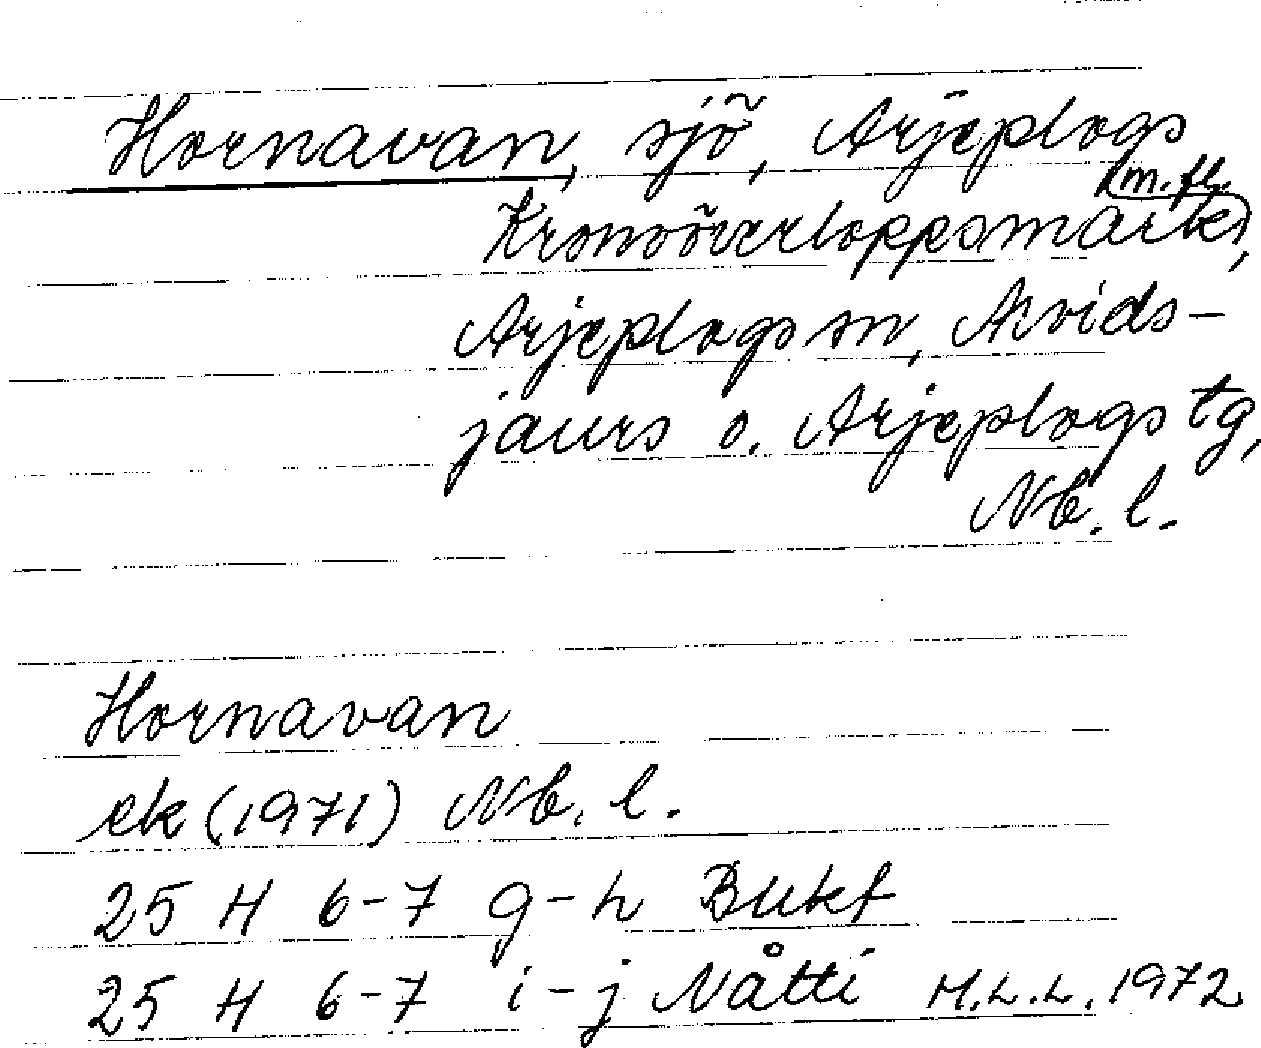 Hornavan, sjö, Arjeplogs
(m.fl.)
Kronoöverloppsmark,
Arjeplogs sn, Arvids-
jaurs o. Arjeplogs tg,
Nb. l.
Hornavan
ek (1971) Nb. l.
25 H 6-7 g-h Bukt
25 H 6-7 i-j Nåtti H.L.L. 1972